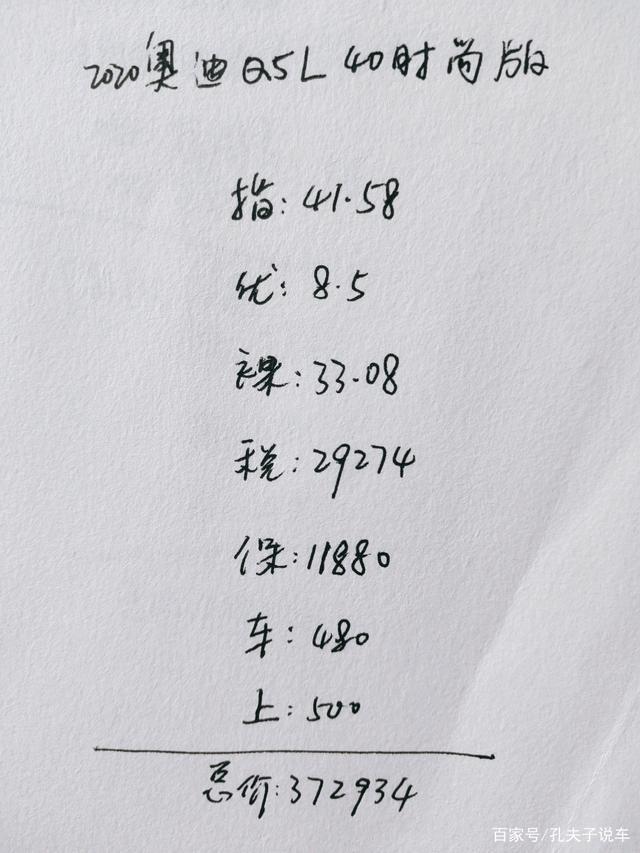 2020奥迪Q5L 40时尚版
指:41.58
优:8.5
裸:33.08
税:29274
保:11880
车:480
上:500
总价:372934
百家号/孔夫子说车